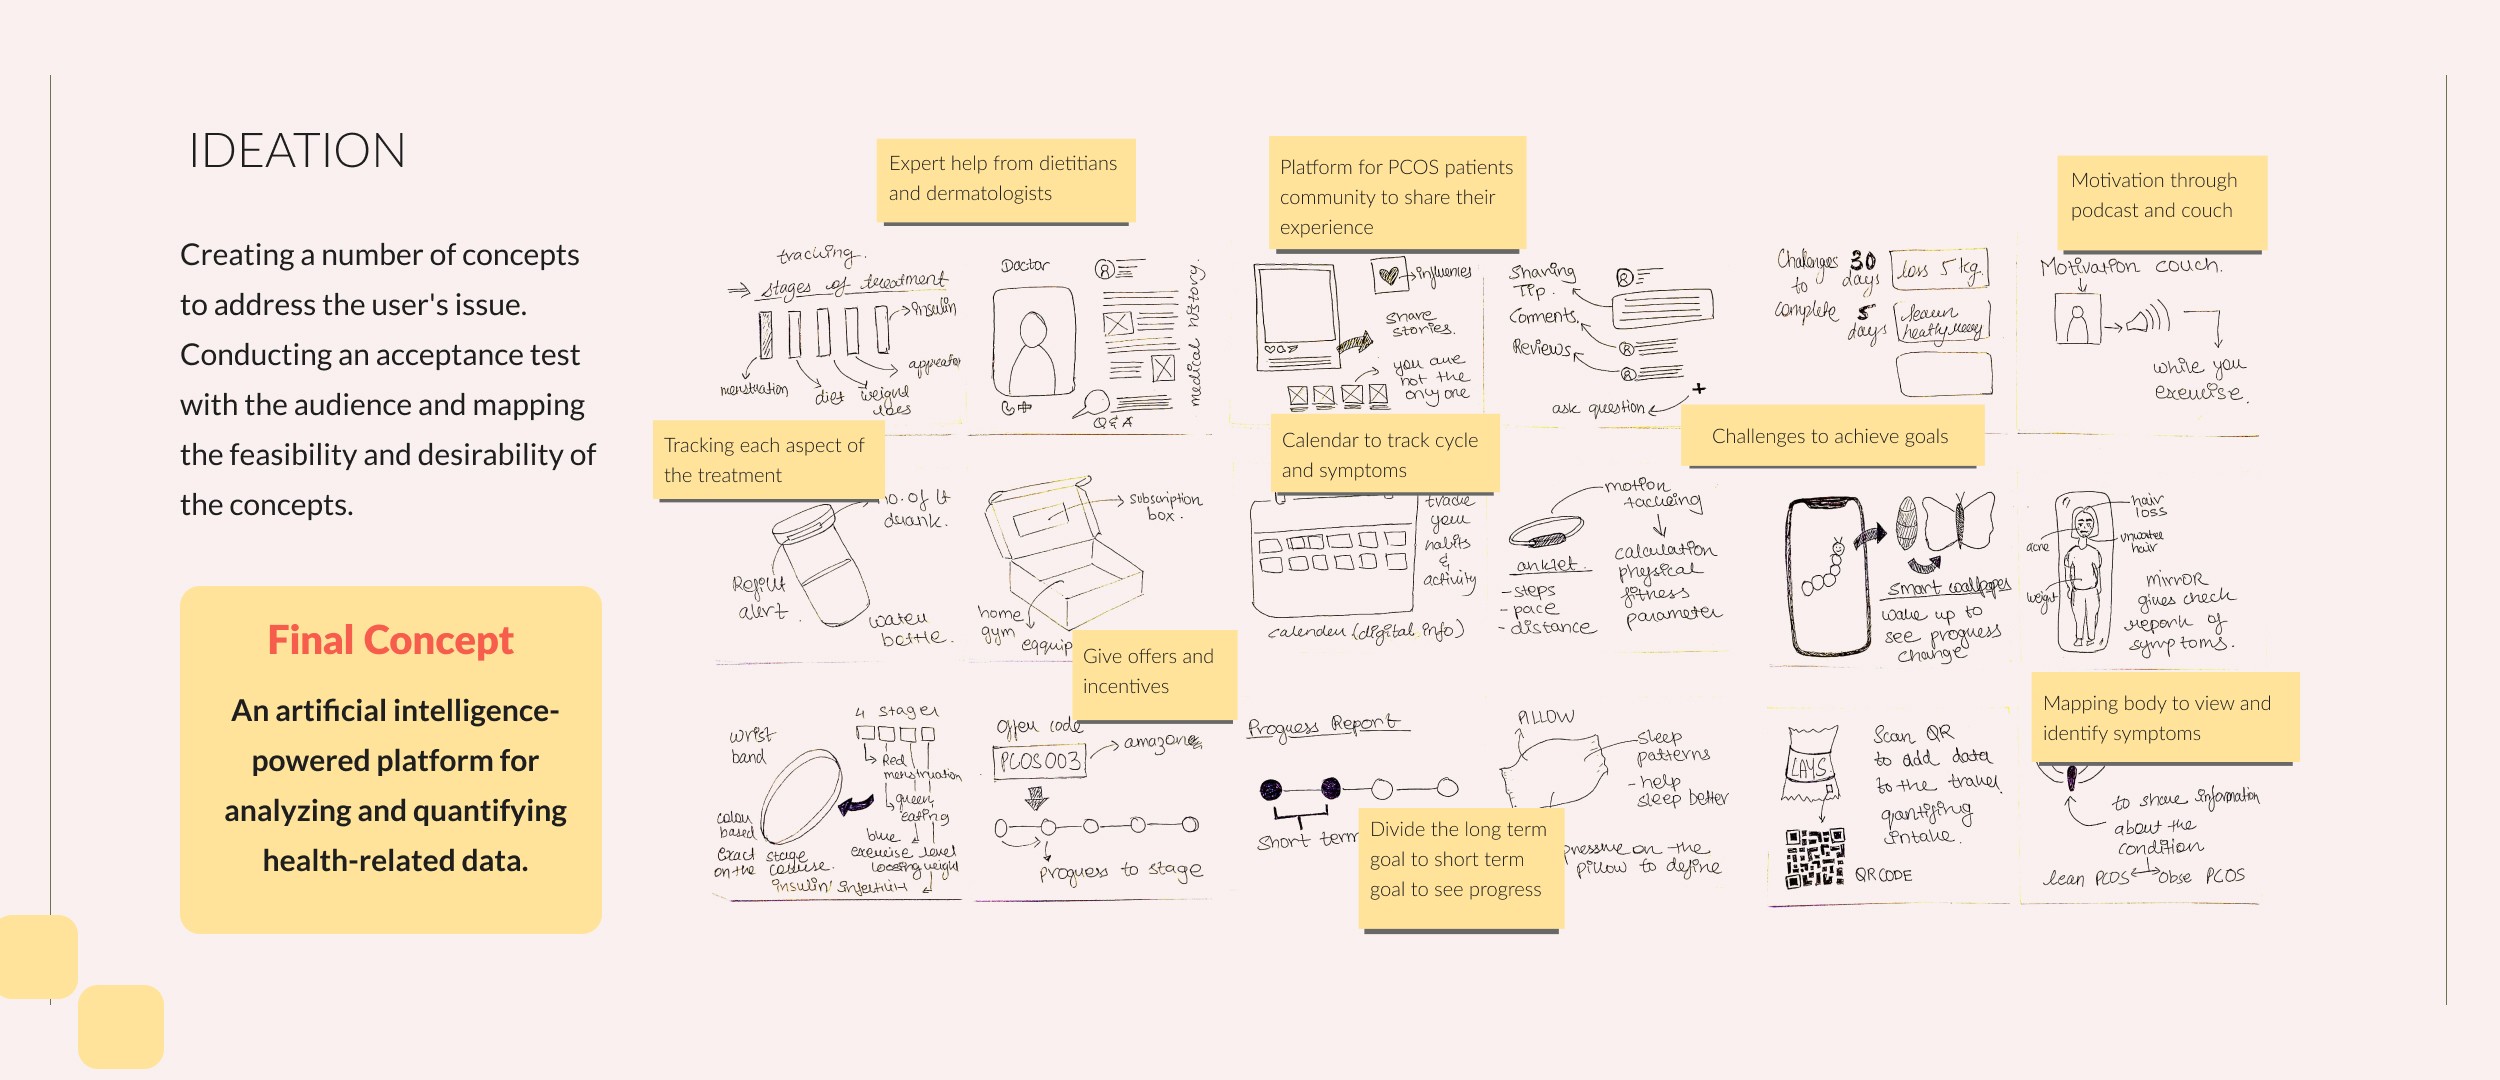 IDEATION
Creating a number of concepts
to address the user's issue.
Conducting an acceptance test
with the audience and mapping
the feasibility and desirability of
the concepts.
Final Concept
An artificial intelligence-
powered platform for
analyzing and quantifying
health-related data.
Expert help from dietitians
and dermatologists
Platform for PCOS patients
community to share their
experience
Motivation through
podcast and couch
tracking.
⇒ stages of treatment
insulin
menstration
diet
weight
loss
Doctor
medical history.
Q & A
share
stories.
you are
not the
only one
Sharing
Tip.
Comments
Reviews
ask question
+
Challenges 30
to days
complete 5
days
loss 5 kg.
learn
Motivation couch.
while you
exercise.
Tracking each aspect of
the treatment
Calendar to track cycle
and symptoms
Challenges to achieve goals
no. of lt
drank.
Refill
alert.
water
bottle.
subscription
box.
home
gym
track
your
habits
&
activity
calender (digital info)
motion
tracking
anklet.
-steps
-pace
-distance
calculation
physical
fitness
parameter
smart wallpaper
wake up to
see progress
change
hair
loss
acne
unwanted
hair
weight
mirror
gives check
report of
symptoms.
Give offers and
incentives
Mapping body to view and
identify symptoms
wrist
band
4 stages
Red
menstruation
green
eating
blue
exercise level
loosing weight
colour
based
exact stage
on the course.
offer code
PCOS003
progress to stage
Progress Report
short term
Divide the long term
goal to short term
goal to see progress
PILLOW
sleep
patterns
-help
sleep better
pressure on the
pillow to define
LAYS
Scan QR
to add data
to the travel
intake.
QR CODE
to share information
about the
condition
lean PCOS
obse PCOS